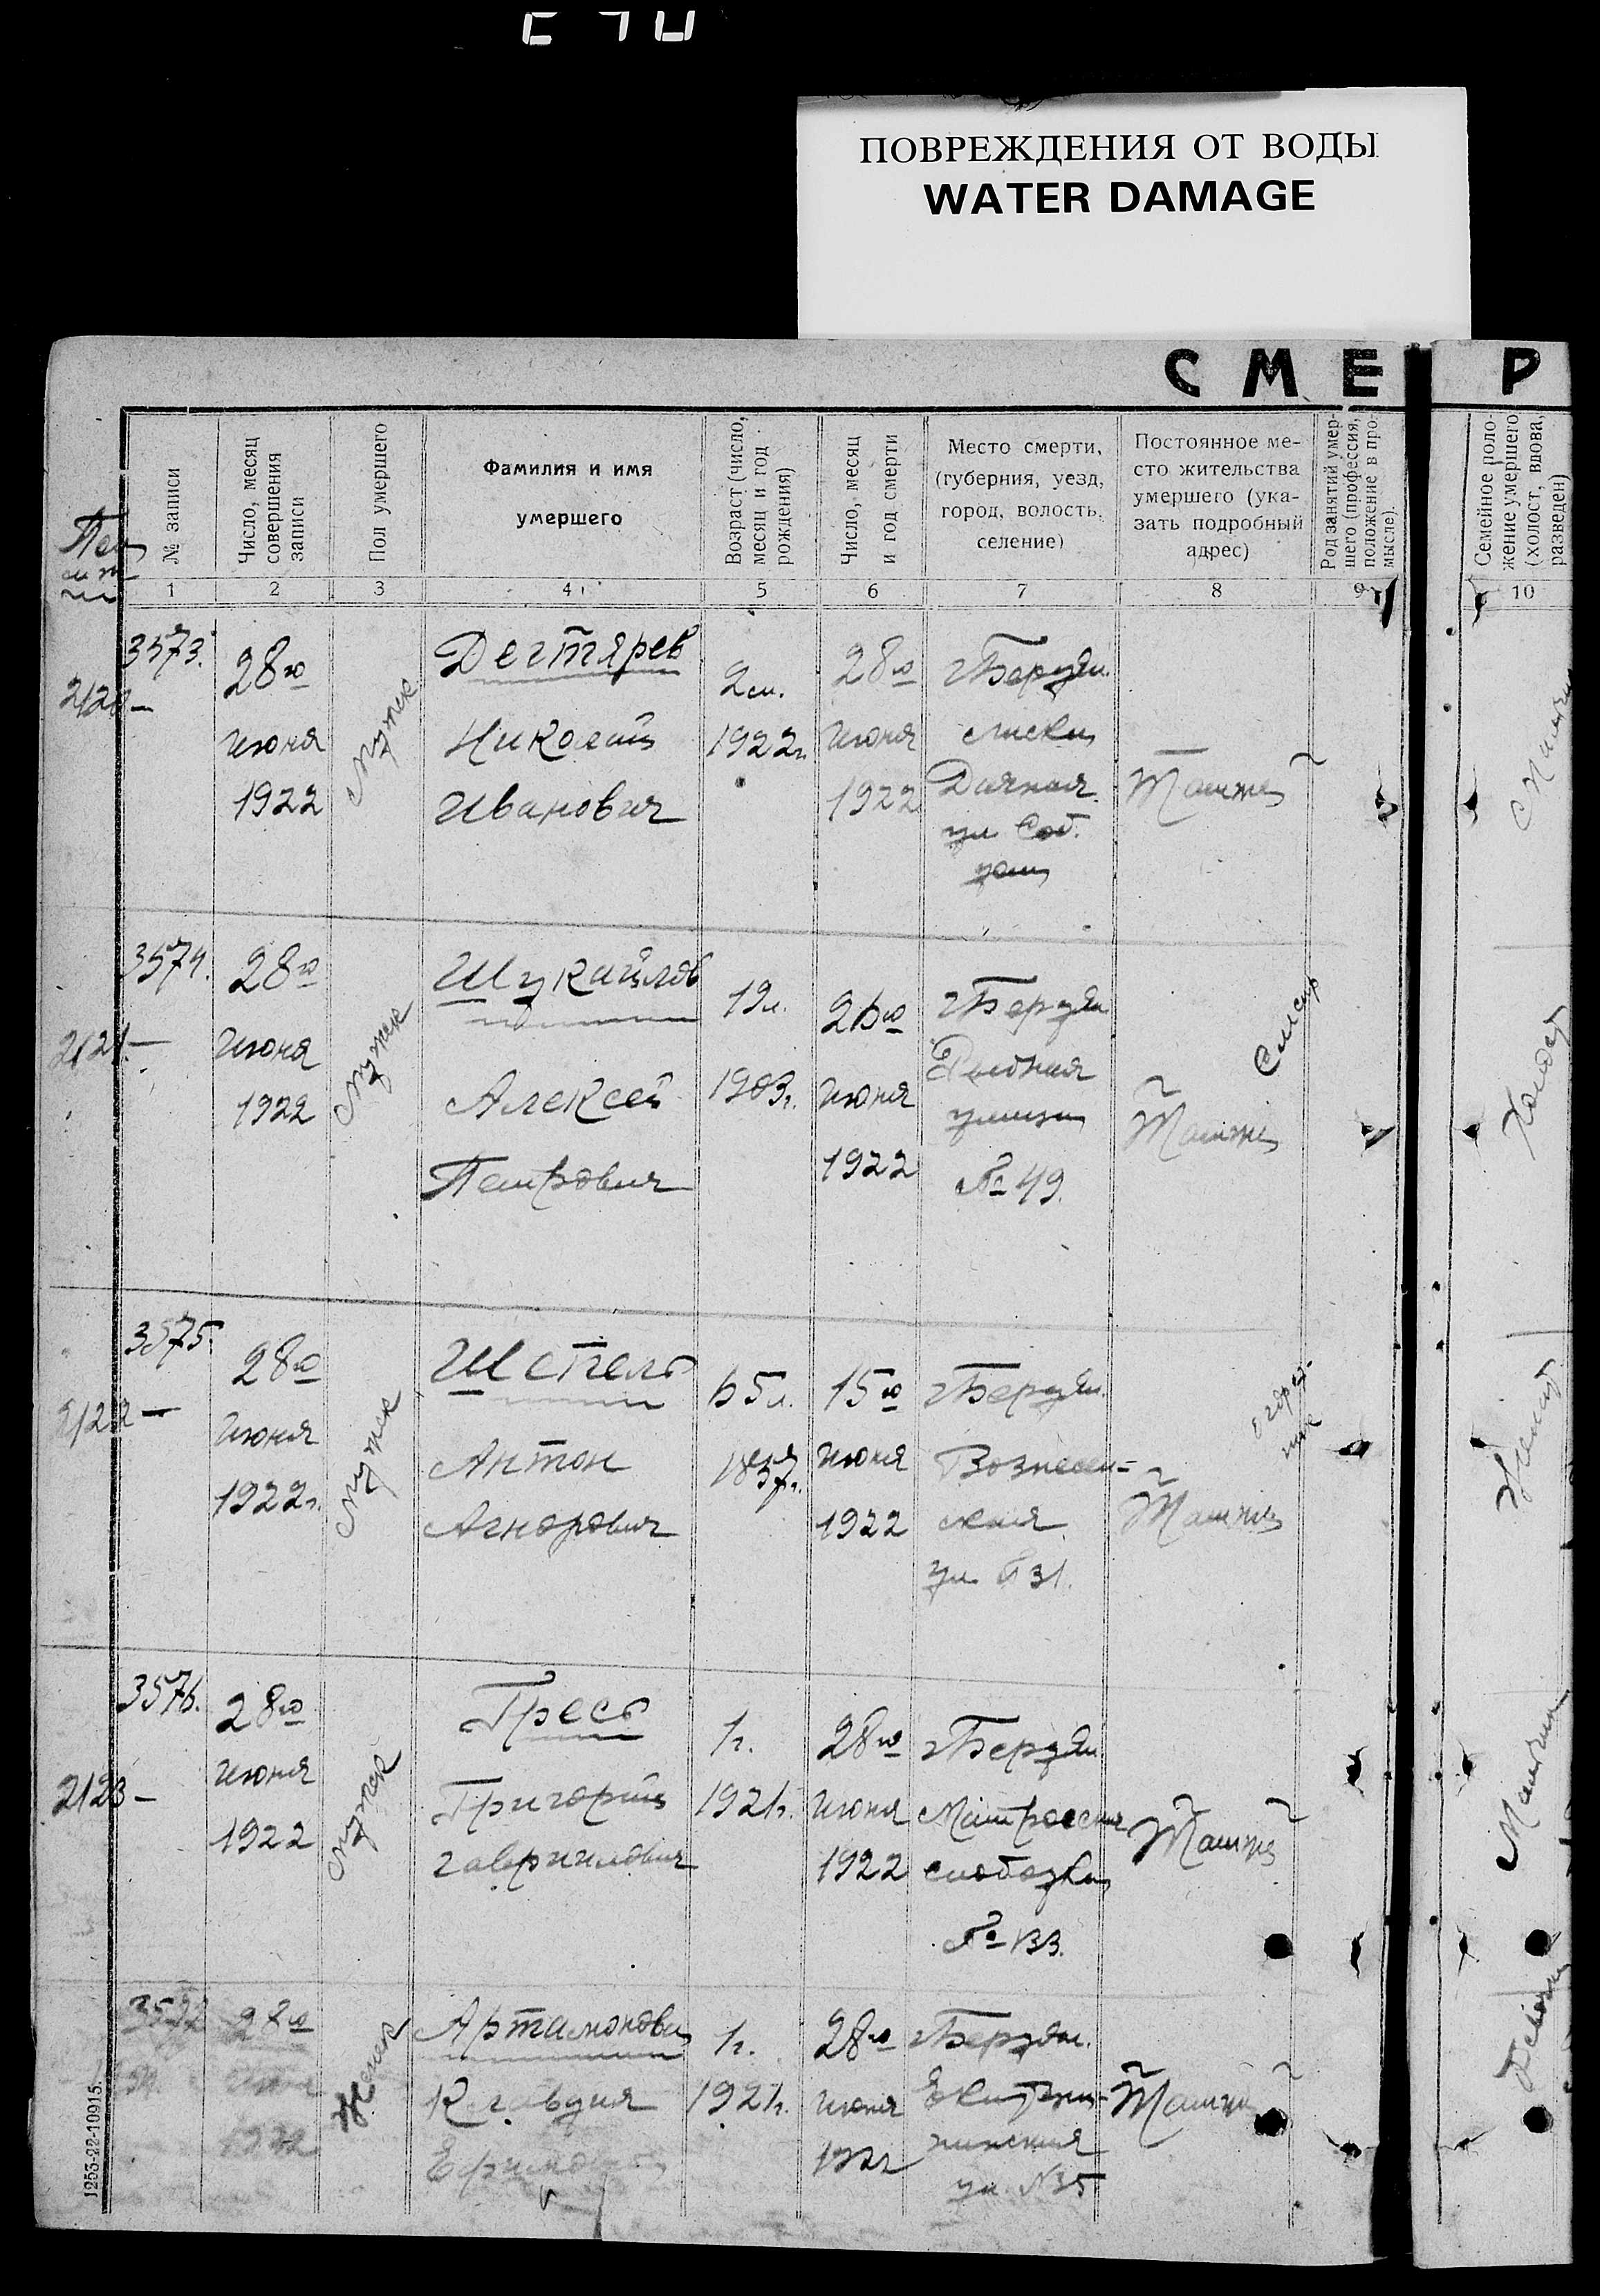 ПОВРЕЖДЕНИЯ ОТ ВОДЫ
WATER DAMAGE
СМЕР
№ записи
Число, месяц
совершения
записи
Пол умершего
Фамилия и имя
умершего
Возраст (число,
месяц и год
рождения)
Число, месяц
и год смерти
Место смерти,
(губерния, уезд,
город, волость,
селение)
Постоянное ме-
сто жительства
умершего (ука-
зать подробный
адрес)
Род занятий умер-
шего (профессия,
положение в про-
мысле).
Семейное поло-
жение умершего
(холост, вдова,
разведен)
1 2 3 4 5 6 7 8 9 10
3573.
28го
июня
1922
Мужск
Дегтярев
Николай
Иванович
2 м.
1922г.
28го
июня
1922
г Бердян
Дачная
ул Соб.
дом
Тамже
3574.
2121.—
28го
июня
1922
Мужск
Шукайлов
Алексей
Петрович
19л.
1903г.
26го
июня
1922
г Бердян
улица
№ 49.
Тамже
Слесар
Холост
3575.
2122 —
28го
июня
1922г.
Мужск
Шепель
Антон
65л.
1857г.
15го
июня
1922
г Бердян.
Вознесен-
ская
ул № 31.
Тамже
3576.
2123 —
28го
июня
1922
Мужск
Гресь
Григорий
Гавриилович
1г.
1921г.
28го
июня
1922
г Бердян
слободка
№ 133.
Тамже
Мальчик
3577
28го
1922
Женск
Артамонова
Клавдия
1г.
1921г.
28го
июня
1922
г Бердян.
Екатери-
нинская
ул. №35
Тамже
1253-22-10915.